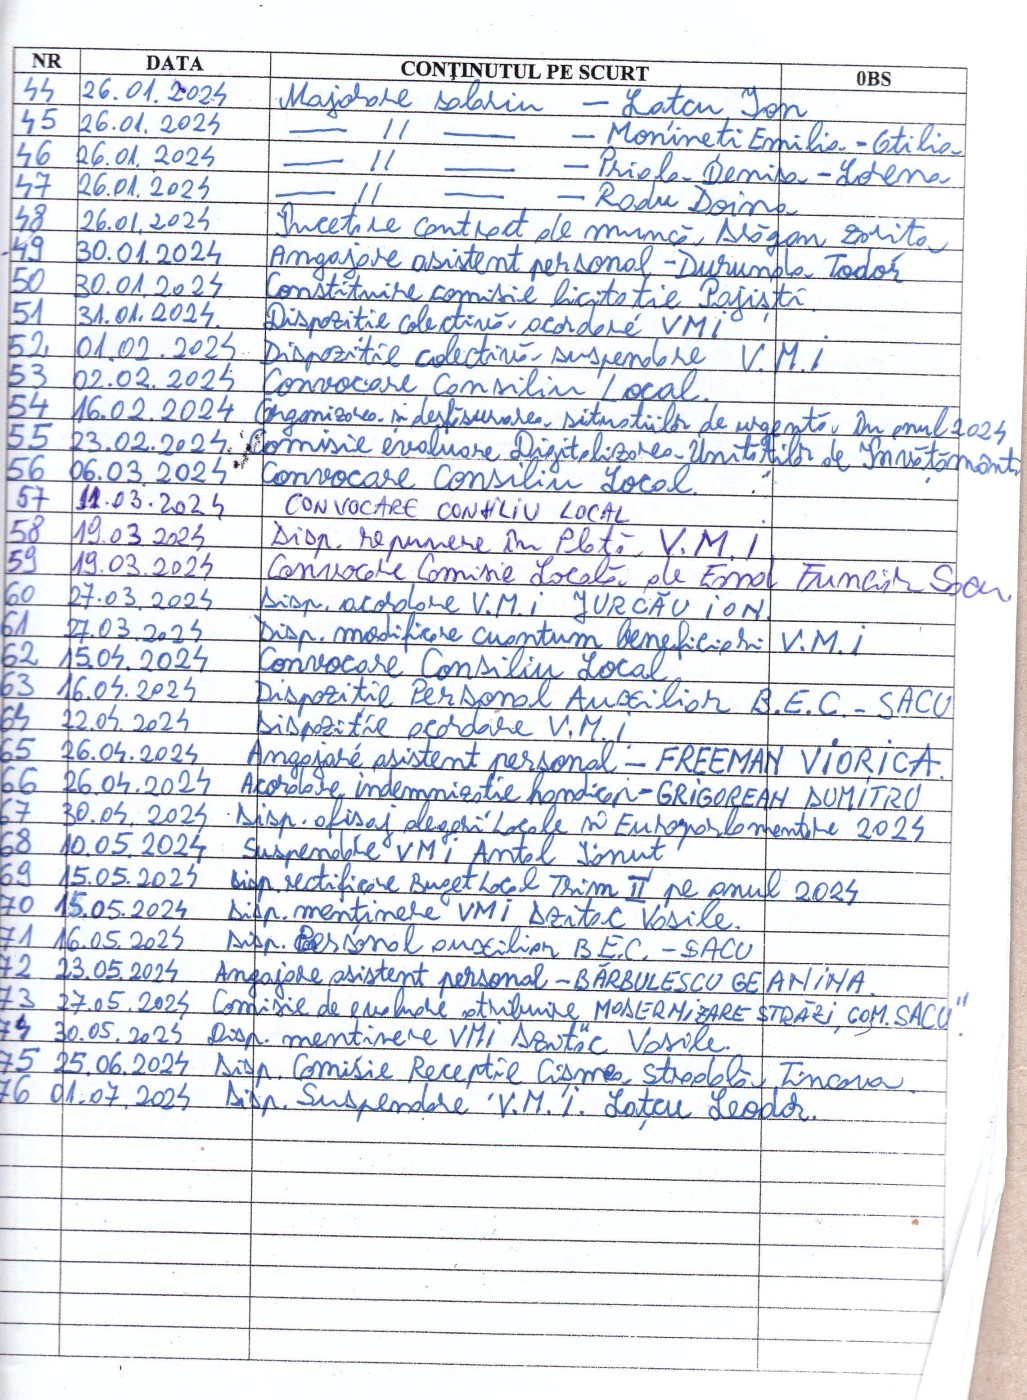 NR DATA CONȚINUTUL PE SCURT OBS
44 26.01.2024 Majorare salariu - Latcu Ion
45 26.01.2024 — // — - Monineti Emilia-Otilia
46 26.01.2024 — // — - Denisa-Lorena
47 26.01.2024 — // — - Radu Doina
48 26.01.2024 Încetare contract de muncă Drăgan
49 30.01.2024 Angajare asistent personal - Todor
50 30.01.2024 Constituire comisie licitatie Pajiști
51 31.01.2024 Dispozitie colectivă acordare VMi
52 01.02.2024 Dispozitie colectivă suspendare V.M.i
53 02.02.2024 Convocare Consiliu Local.
54 16.02.2024 Organizarea si desfasurarea situatiilor de urgentă în anul 2024
55 23.02.2024 Comisie evaluare Digitalizarea Unitatilor de Învățământ
56 06.03.2024 Convocare Consiliu Local.
57 11.03.2024 CONVOCARE CONSILIU LOCAL
58 19.03.2024 Disp. repunere în Plată V.M.I
59 19.03.2024 Convocare Comisie Locală de Fond Funciar Sacu
60 27.03.2024 Disp. acordare V.M.i JURCĂU iON
61 27.03.2024 Disp. modificare cuantum beneficiari V.M.i
62 15.04.2024 Convocare Consiliu Local
63 16.04.2024 Dispozitie Personal Auxiliar B.E.C. - SACU
64 22.04.2024 Dispozitie acordare V.M.i
65 26.04.2024 Angajare asistent personal - FREEMAN ViORiCA.
66 26.04.2024 Acordare indemnizatie handicap - GRiGOREAN DUMiTRU
67 30.04.2024 Disp. afisaj alegeri Locale si Europarlamentare 2024
68 10.05.2024 Suspendare VMi Antal Ionut
69 15.05.2024 Disp. rectificare Buget Local Trim II pe anul 2024
70 15.05.2024 Disp. menținere VMi Vasile.
71 16.05.2024 Disp. Personal auxiliar B.E.C. - SACU
72 23.05.2024 Angajare asistent personal - BĂRBULESCU GEANiNA
73 27.05.2024 Comisie de evaluare atribuire MODERNiZARE STRĂZi, COM. SACU"
74 30.05.2024 Disp. mentinere VMi Vasile.
75 25.06.2024 Disp. Comisie Receptie Cismea Stradală Tincova
76 01.07.2024 Disp. Suspendare V.M.i. Lațcu Leodor.